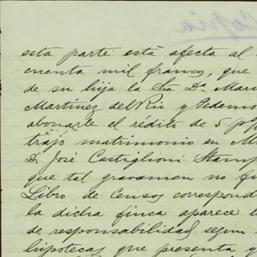 Copia
esta parte está afecta al
cuenta mil francos, que
de su hija la Sra Da. Mar
Martinez del Rio y Pedemo
abonarle el rédito de 5 p%
trajo matrimonio en M
D. José Castiglioni Stamp
que tal gravamen no fu
Libro de Censos correspond
la dicha finca aparece l
de responsabilidad, segun
hipotecas que presenta y